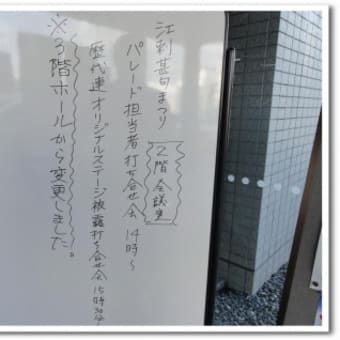 江刺甚句まつり
2階会議室
パレード担当者打ち合せ会 14時〜
歴代連オリジナルステージ披露打ち合せ会 15時30分
※3階ホールから変更しました。